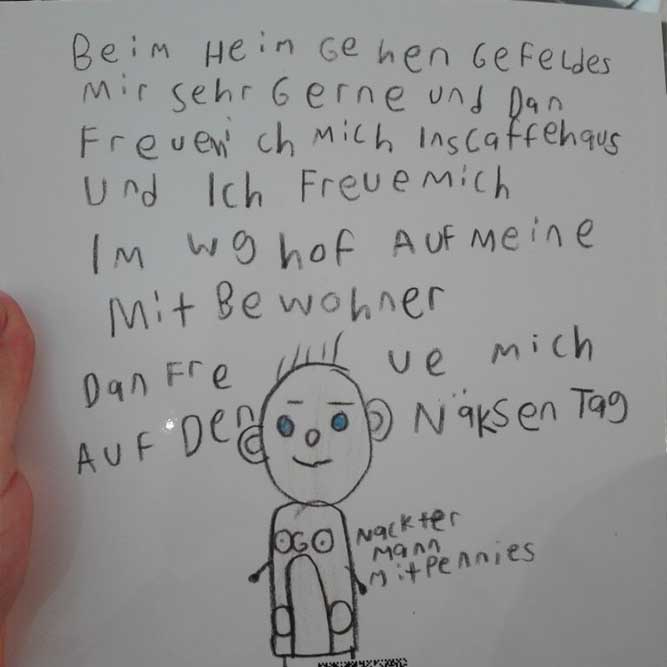 Beim Heim Gehen Gefeldes
Mir sehr Gerne und Dan
Freuen ich Mich Inscaffehaus
Und Ich Freue Mich
Im WG hof Auf Meine
Mit Bewohner
Dan Freue mich
Auf Den Näksen Tag
OGO
Nackter
Mann
Mitpennies